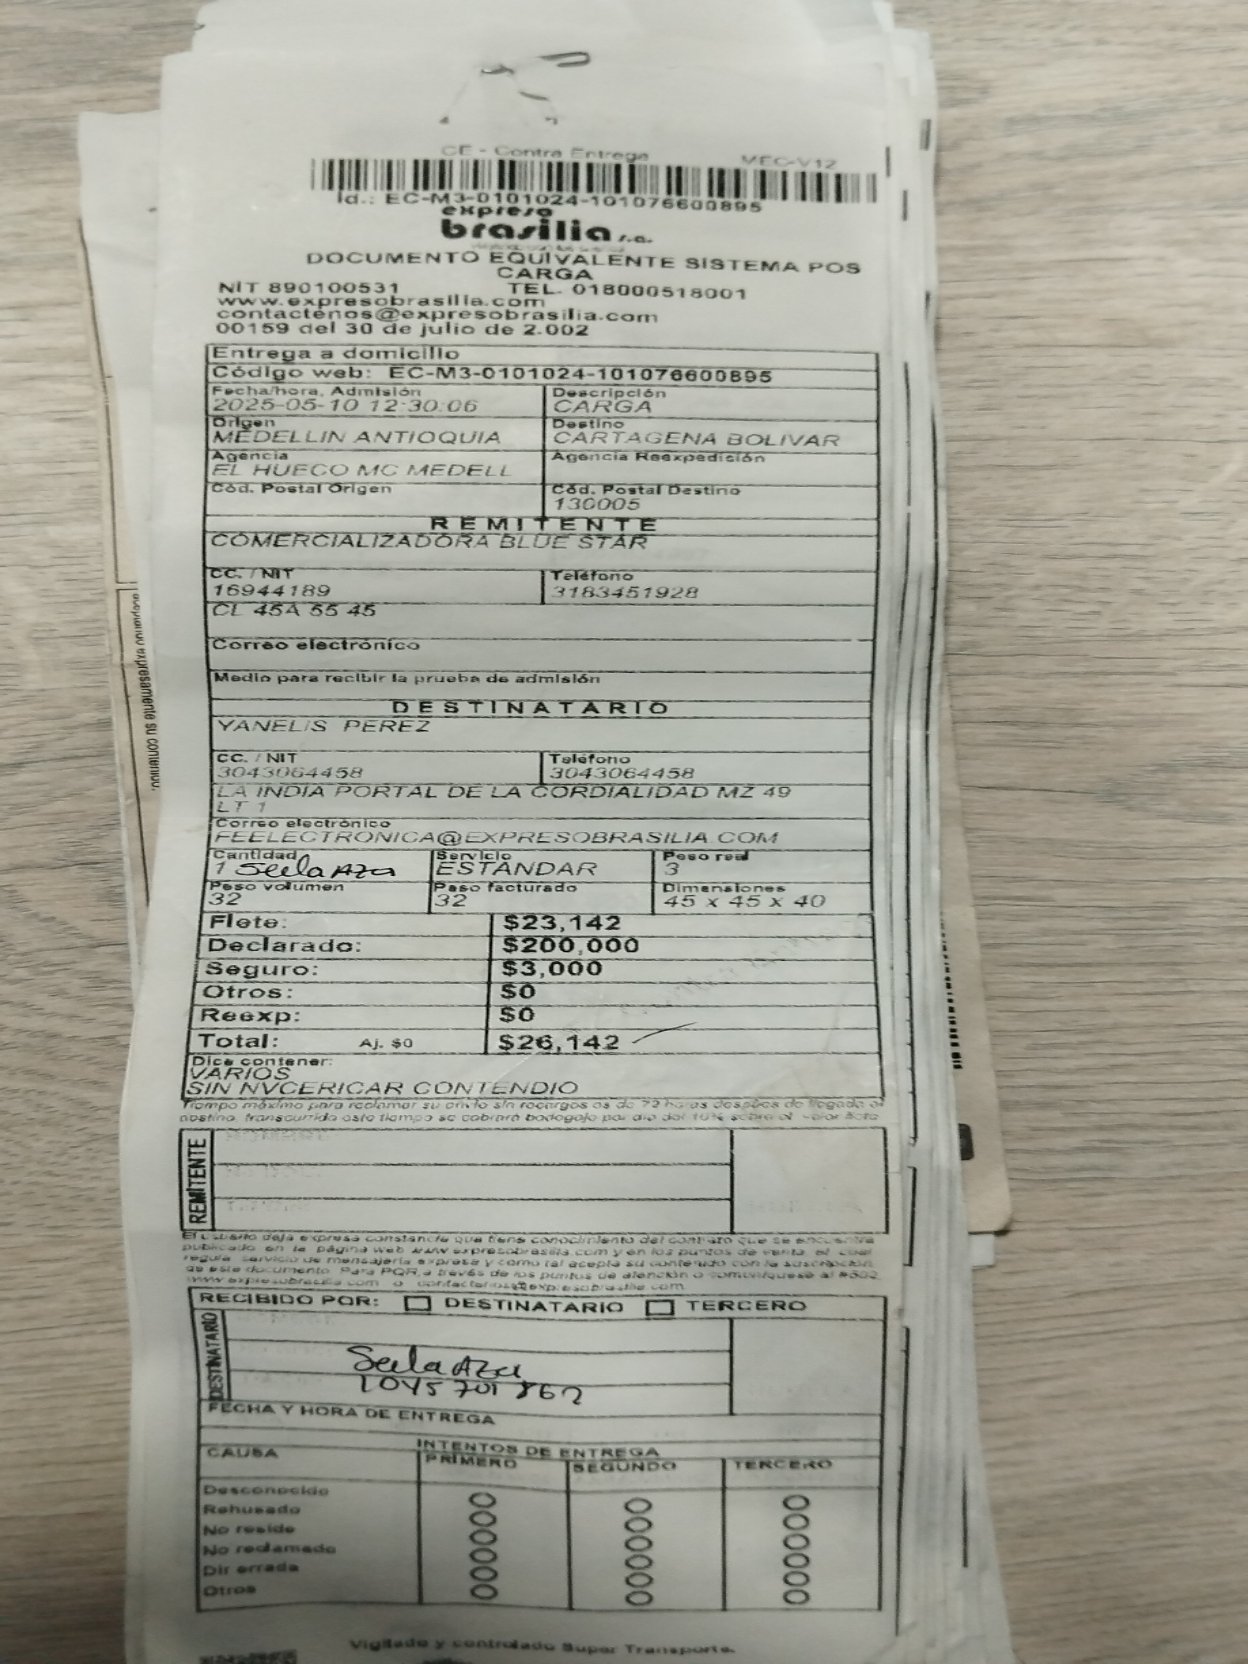 CE - Contra Entrega MEC-V12
Id.: EC-M3-0101024-101076600895
expreso
brasilia s.a.
DOCUMENTO EQUIVALENTE SISTEMA POS
CARGA
NIT 890100531 TEL. 018000518001
www.expresobrasilia.com
contactenos@expresobrasilia.com
00159 del 30 de julio de 2.002
Entrega a domicilio
Código web: EC-M3-0101024-101076600895
Fecha/hora. Admisión Descripción
2025-05-10 12:30:06 CARGA
Origen Destino
MEDELLIN ANTIOQUIA CARTAGENA BOLIVAR
Agencia Agencia Reexpedición
EL HUECO MC MEDELL
Cód. Postal Origen Cód. Postal Destino
130005
REMITENTE
COMERCIALIZADORA BLUE STAR
CC. / NIT Teléfono
16944189 3183451928
CL 45A 55 45
Correo electrónico
Medio para recibir la prueba de admisión
DESTINATARIO
YANELIS PEREZ
CC. / NIT Teléfono
3043064458 3043064458
LA INDIA PORTAL DE LA CORDIALIDAD MZ 49
LT 1
Correo electrónico
FEELECTRONICA@EXPRESOBRASILIA.COM
Cantidad Servicio Peso real
1 Seela Aza ESTANDAR 3
Peso volumen Peso facturado Dimensiones
32 32 45 x 45 x 40
Flete: $23,142
Declarado: $200,000
Seguro: $3,000
Otros: $0
Reexp: $0
Total: Aj. $0 $26,142
Dice contener:
VARIOS
SIN NVCERICAR CONTENDIO
Tiempo máximo para reclamar su envío sin recargos es de 72 horas después de llegada al
destino, transcurrido este tiempo se cobrará bodegaje por día del 10% sobre el valor flete
REMITENTE
El usuario deja expresa constancia que tiene conocimiento del contrato que se encuentra
publicado en la página web www.expresobrasilia.com y en los puntos de venta, el cual
regula servicio de mensajería expresa y como tal acepta su contenido con la suscripción
de este documento. Para PQR a través de los puntos de atención o comuníquese al #502
www.expresobrasilia.com o contactenos@expresobrasilia.com
RECIBIDO POR: DESTINATARIO TERCERO
DESTINATARIO
Seela Aza
1045701862
FECHA Y HORA DE ENTREGA
INTENTOS DE ENTREGA
CAUSA PRIMERO SEGUNDO TERCERO
Desconocido
Rehusado
No reside
No reclamado
Dir errada
Otros
Vigilado y controlado Super Transporte.
aceptando expresamente su contenido.